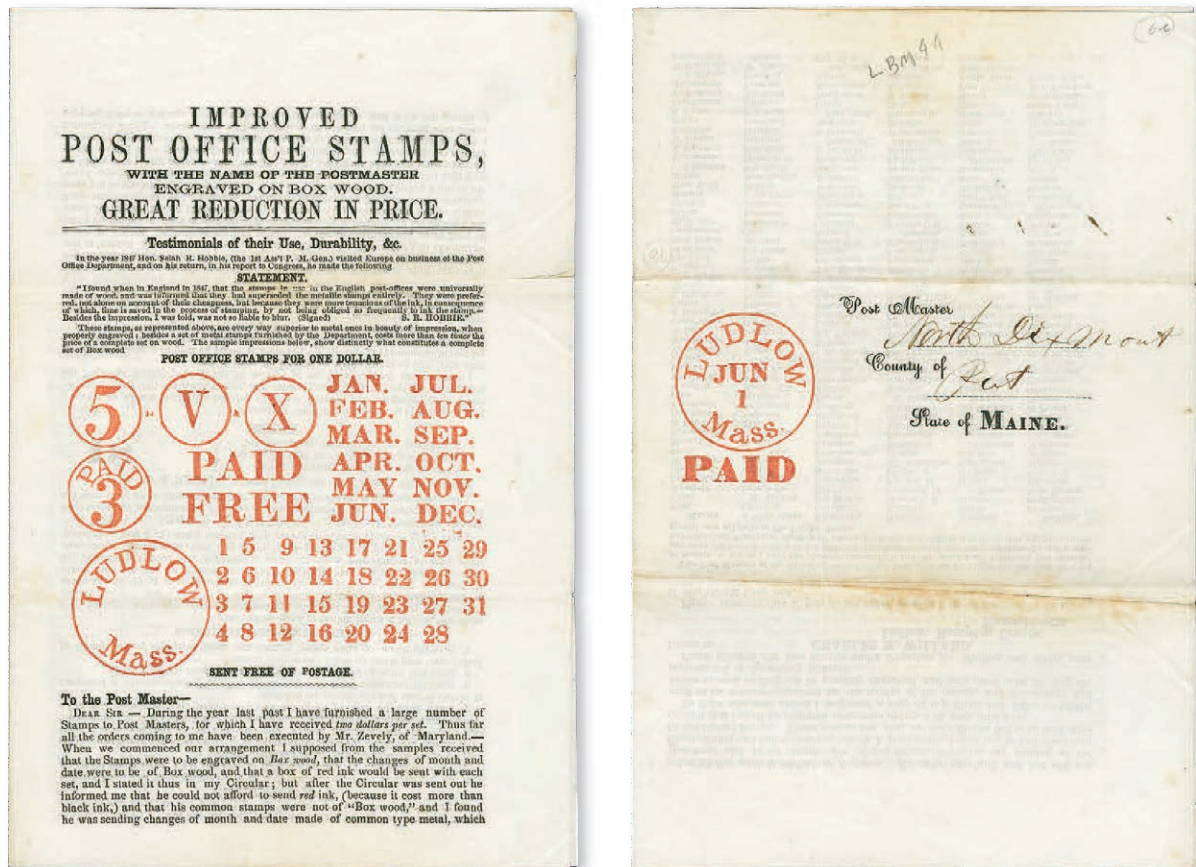 IMPROVED
POST OFFICE STAMPS,
WITH THE NAME OF THE POSTMASTER
ENGRAVED ON BOX WOOD.
GREAT REDUCTION IN PRICE.
Testimonials of their Use, Durability, &c.
In the year 1847 Hon. Selah R. Hobbie, (the 1st Ass't P. M. Gen.) visited Europe on business of the Post
Office Department, and on his return, in his report to Congress, he made the following
STATEMENT.
"I found when in England in 1847, that the stamps in use in the English post-offices were universally
made of wood, and was informed that they had superseded the metallic stamps entirely. They were prefer-
red, not alone on account of their cheapness, but because they were more tenacious of the ink, in consequence
of which, time is saved in the process of stamping, by not being obliged so frequently to ink the stamp.—
Besides the impression, I was told, was not so liable to blur. (Signed) S. R. HOBBIE."
These stamps, as represented above, are every way superior to metal ones in beauty of impression, when
properly engraved; besides a set of metal stamps furnished by the Department, costs more than ten times the
price of a complete set on wood. The sample impressions below, show distinctly what constitutes a complete
set of Box wood
POST OFFICE STAMPS FOR ONE DOLLAR.
5 V & X
JAN. JUL.
FEB. AUG.
MAR. SEP.
PAID 3
PAID
FREE
APR. OCT.
MAY NOV.
JUN. DEC.
LUDLOW
Mass.
1 5 9 13 17 21 25 29
2 6 10 14 18 22 26 30
3 7 11 15 19 23 27 31
4 8 12 16 20 24 28
SENT FREE OF POSTAGE.
To the Post Master—
DEAR SIR — During the year last past I have furnished a large number of
Stamps to Post Masters, for which I have received two dollars per set. Thus far
all the orders coming to me have been executed by Mr. Zevely, of Maryland.—
When we commenced our arrangement I supposed from the samples received
that the Stamps were to be engraved on Box wood, that the changes of month and
date were to be of Box wood, and that a box of red ink would be sent with each
set, and I stated it thus in my Circular; but after the Circular was sent out he
informed me that he could not afford to send red ink, (because it cost more than
black ink,) and that his common stamps were not of "Box wood," and I found
he was sending changes of month and date made of common type metal, which
LBM44
Post Master
North Dixmont
County of
State of MAINE.
LUDLOW
JUN
1
Mass.
PAID